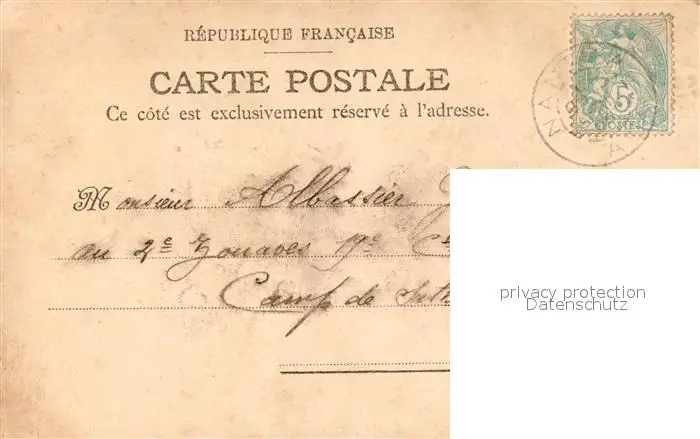 RÉPUBLIQUE FRANÇAISE
CARTE POSTALE
Ce côté est exclusivement réservé à l'adresse.
5c
POSTES
Monsieur Albassier
au 2e Zouaves 19e C
Camp de Sath
privacy protection
Datenschutz